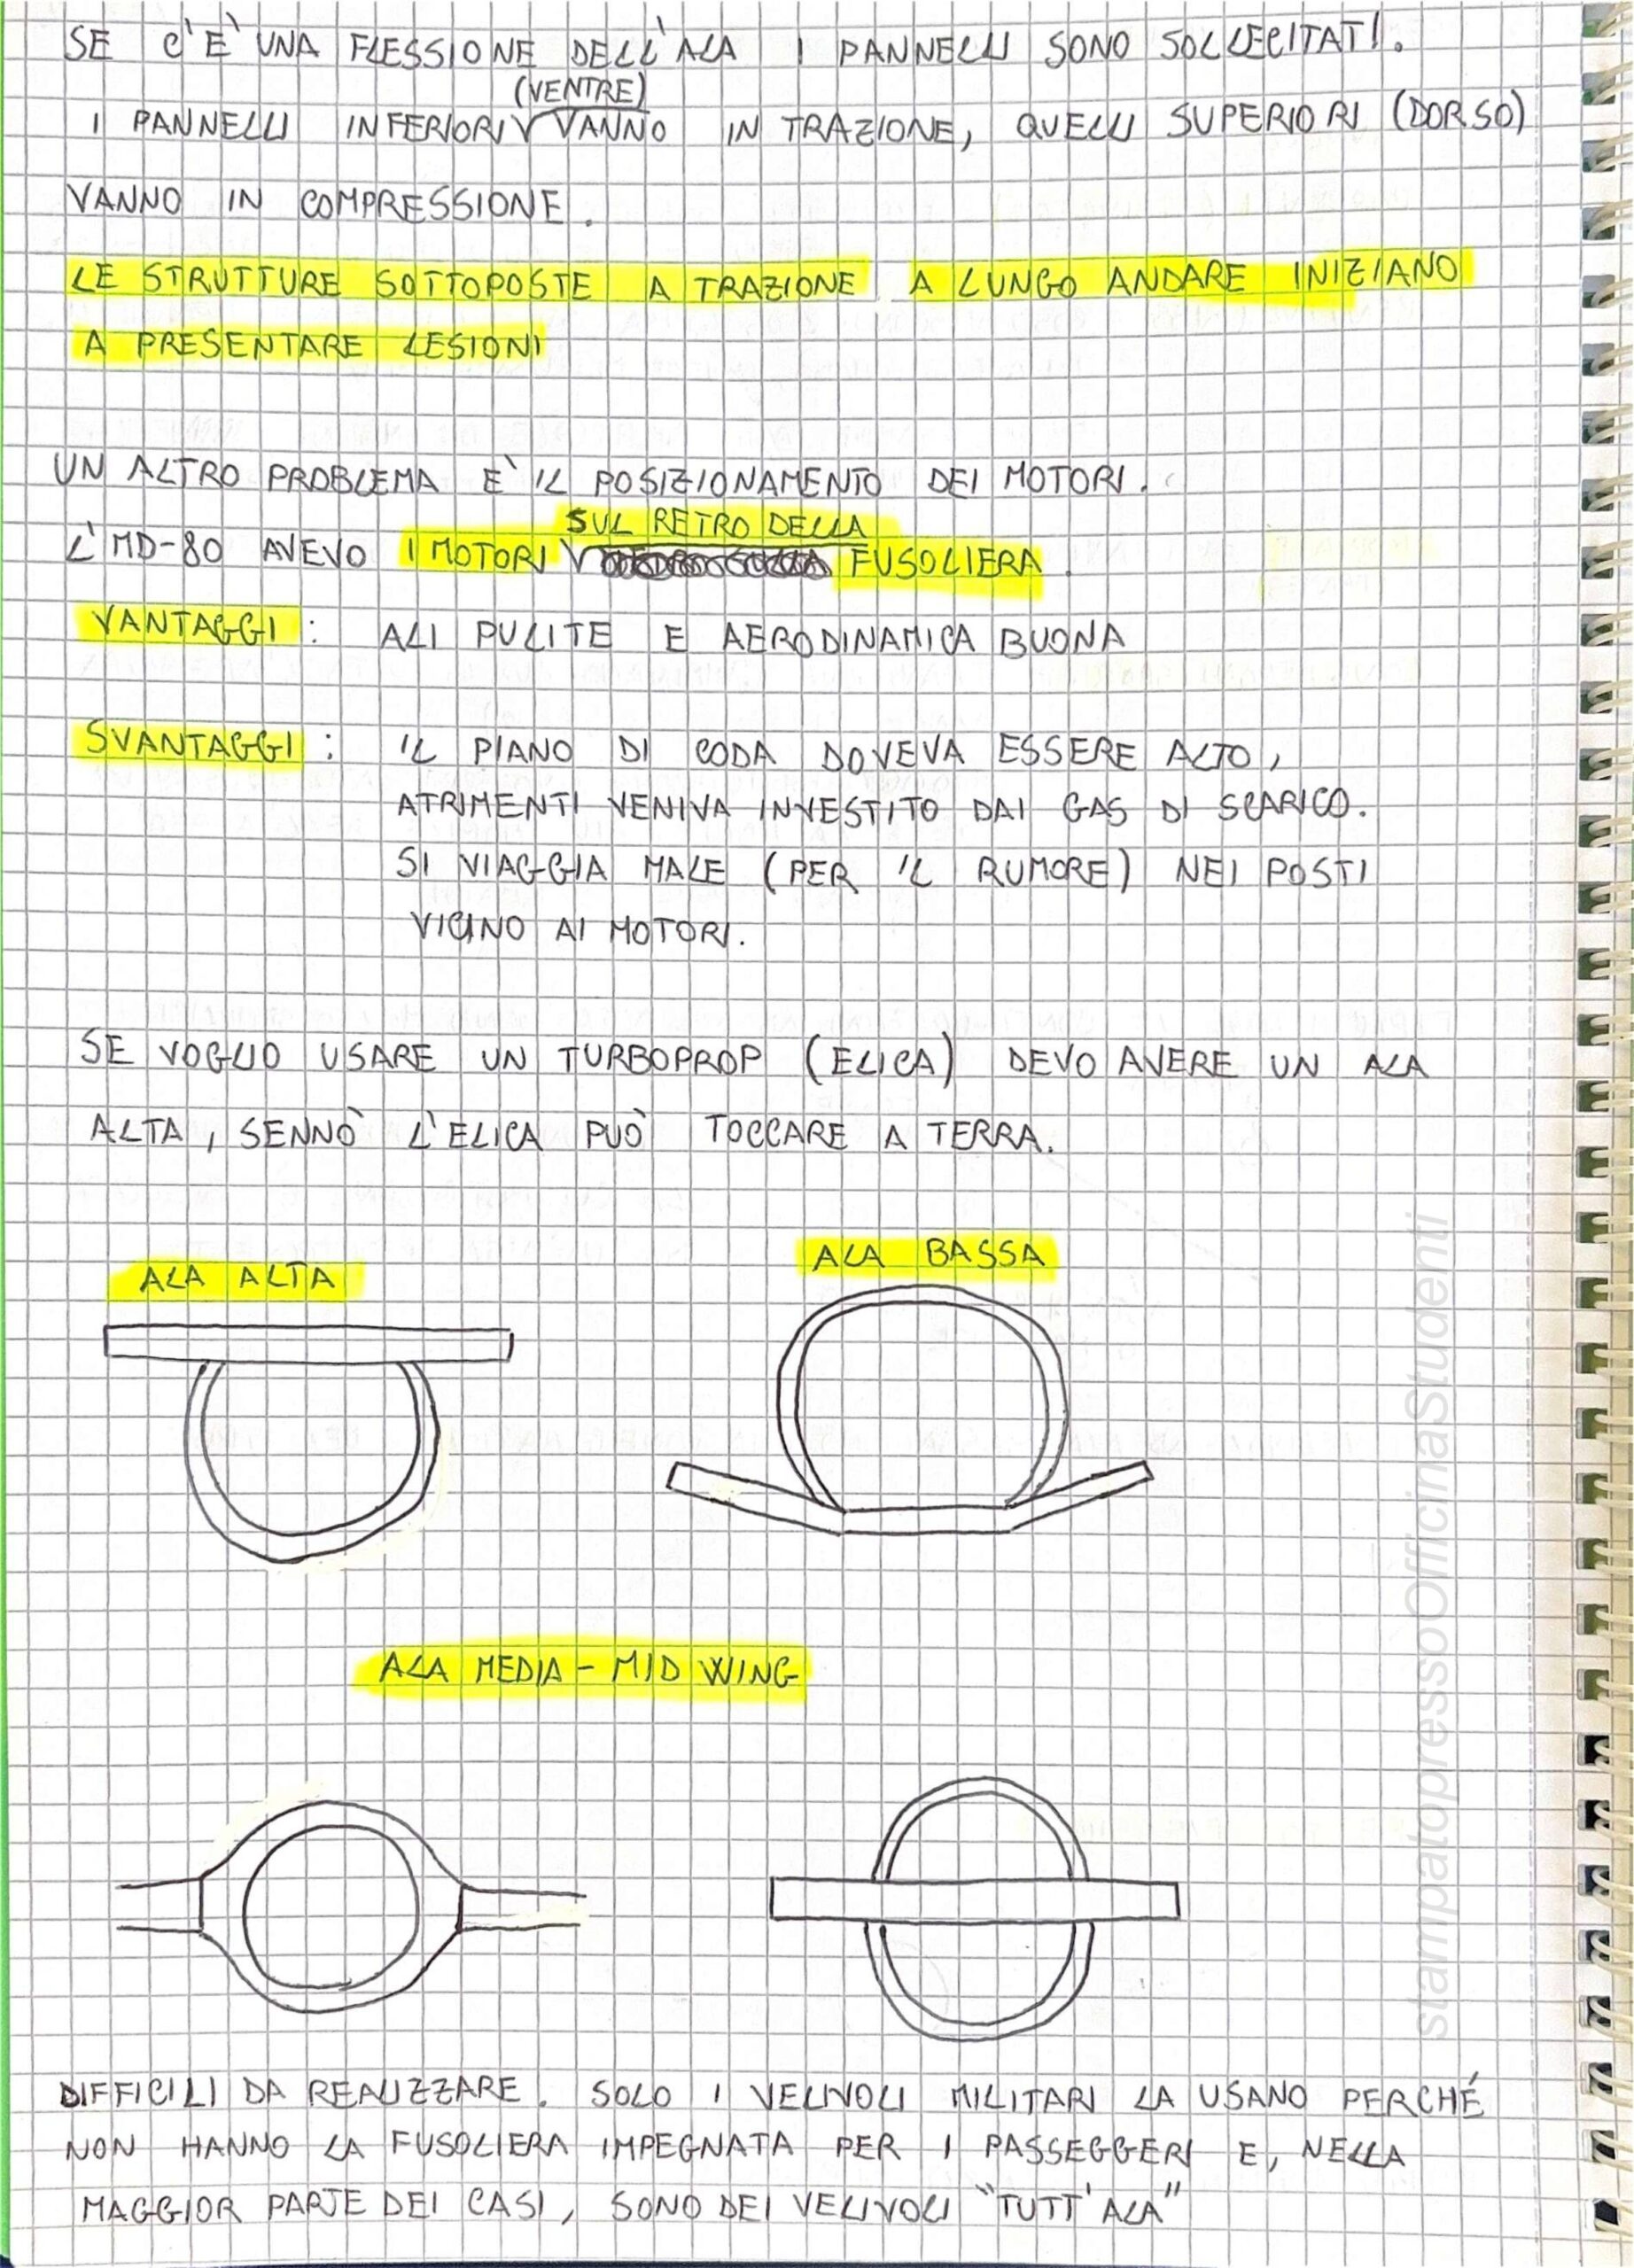 SE C'È UNA FLESSIONE DELL'ALA I PANNELLI SONO SOLLECITATI.
(VENTRE)
I PANNELLI INFERIORI VANNO IN TRAZIONE, QUELLI SUPERIORI (DORSO)
VANNO IN COMPRESSIONE.
LE STRUTTURE SOTTOPOSTE A TRAZIONE A LUNGO ANDARE INIZIANO
A PRESENTARE LESIONI
UN ALTRO PROBLEMA È IL POSIZIONAMENTO DEI MOTORI.
SUL RETRO DELLA
L'MD-80 AVEVO I MOTORI FUSOLIERA.
VANTAGGI: ALI PULITE E AERODINAMICA BUONA
SVANTAGGI: IL PIANO DI CODA DOVEVA ESSERE ALTO,
ATRIMENTI VENIVA INVESTITO DAI GAS DI SCARICO.
SI VIAGGIA MALE (PER IL RUMORE) NEI POSTI
VICINO AI MOTORI.
SE VOGLIO USARE UN TURBOPROP (ELICA) DEVO AVERE UN ALA
ALTA, SENNÒ L'ELICA PUÒ TOCCARE A TERRA.
ALA ALTA
ALA BASSA
ALA MEDIA - MID WING
DIFFICILI DA REALIZZARE. SOLO I VELIVOLI MILITARI LA USANO PERCHÉ
NON HANNO LA FUSOLIERA IMPEGNATA PER I PASSEGGERI E, NELLA
MAGGIOR PARTE DEI CASI, SONO DEI VELIVOLI "TUTT'ALA"
stampatopressoOfficinaStudenti